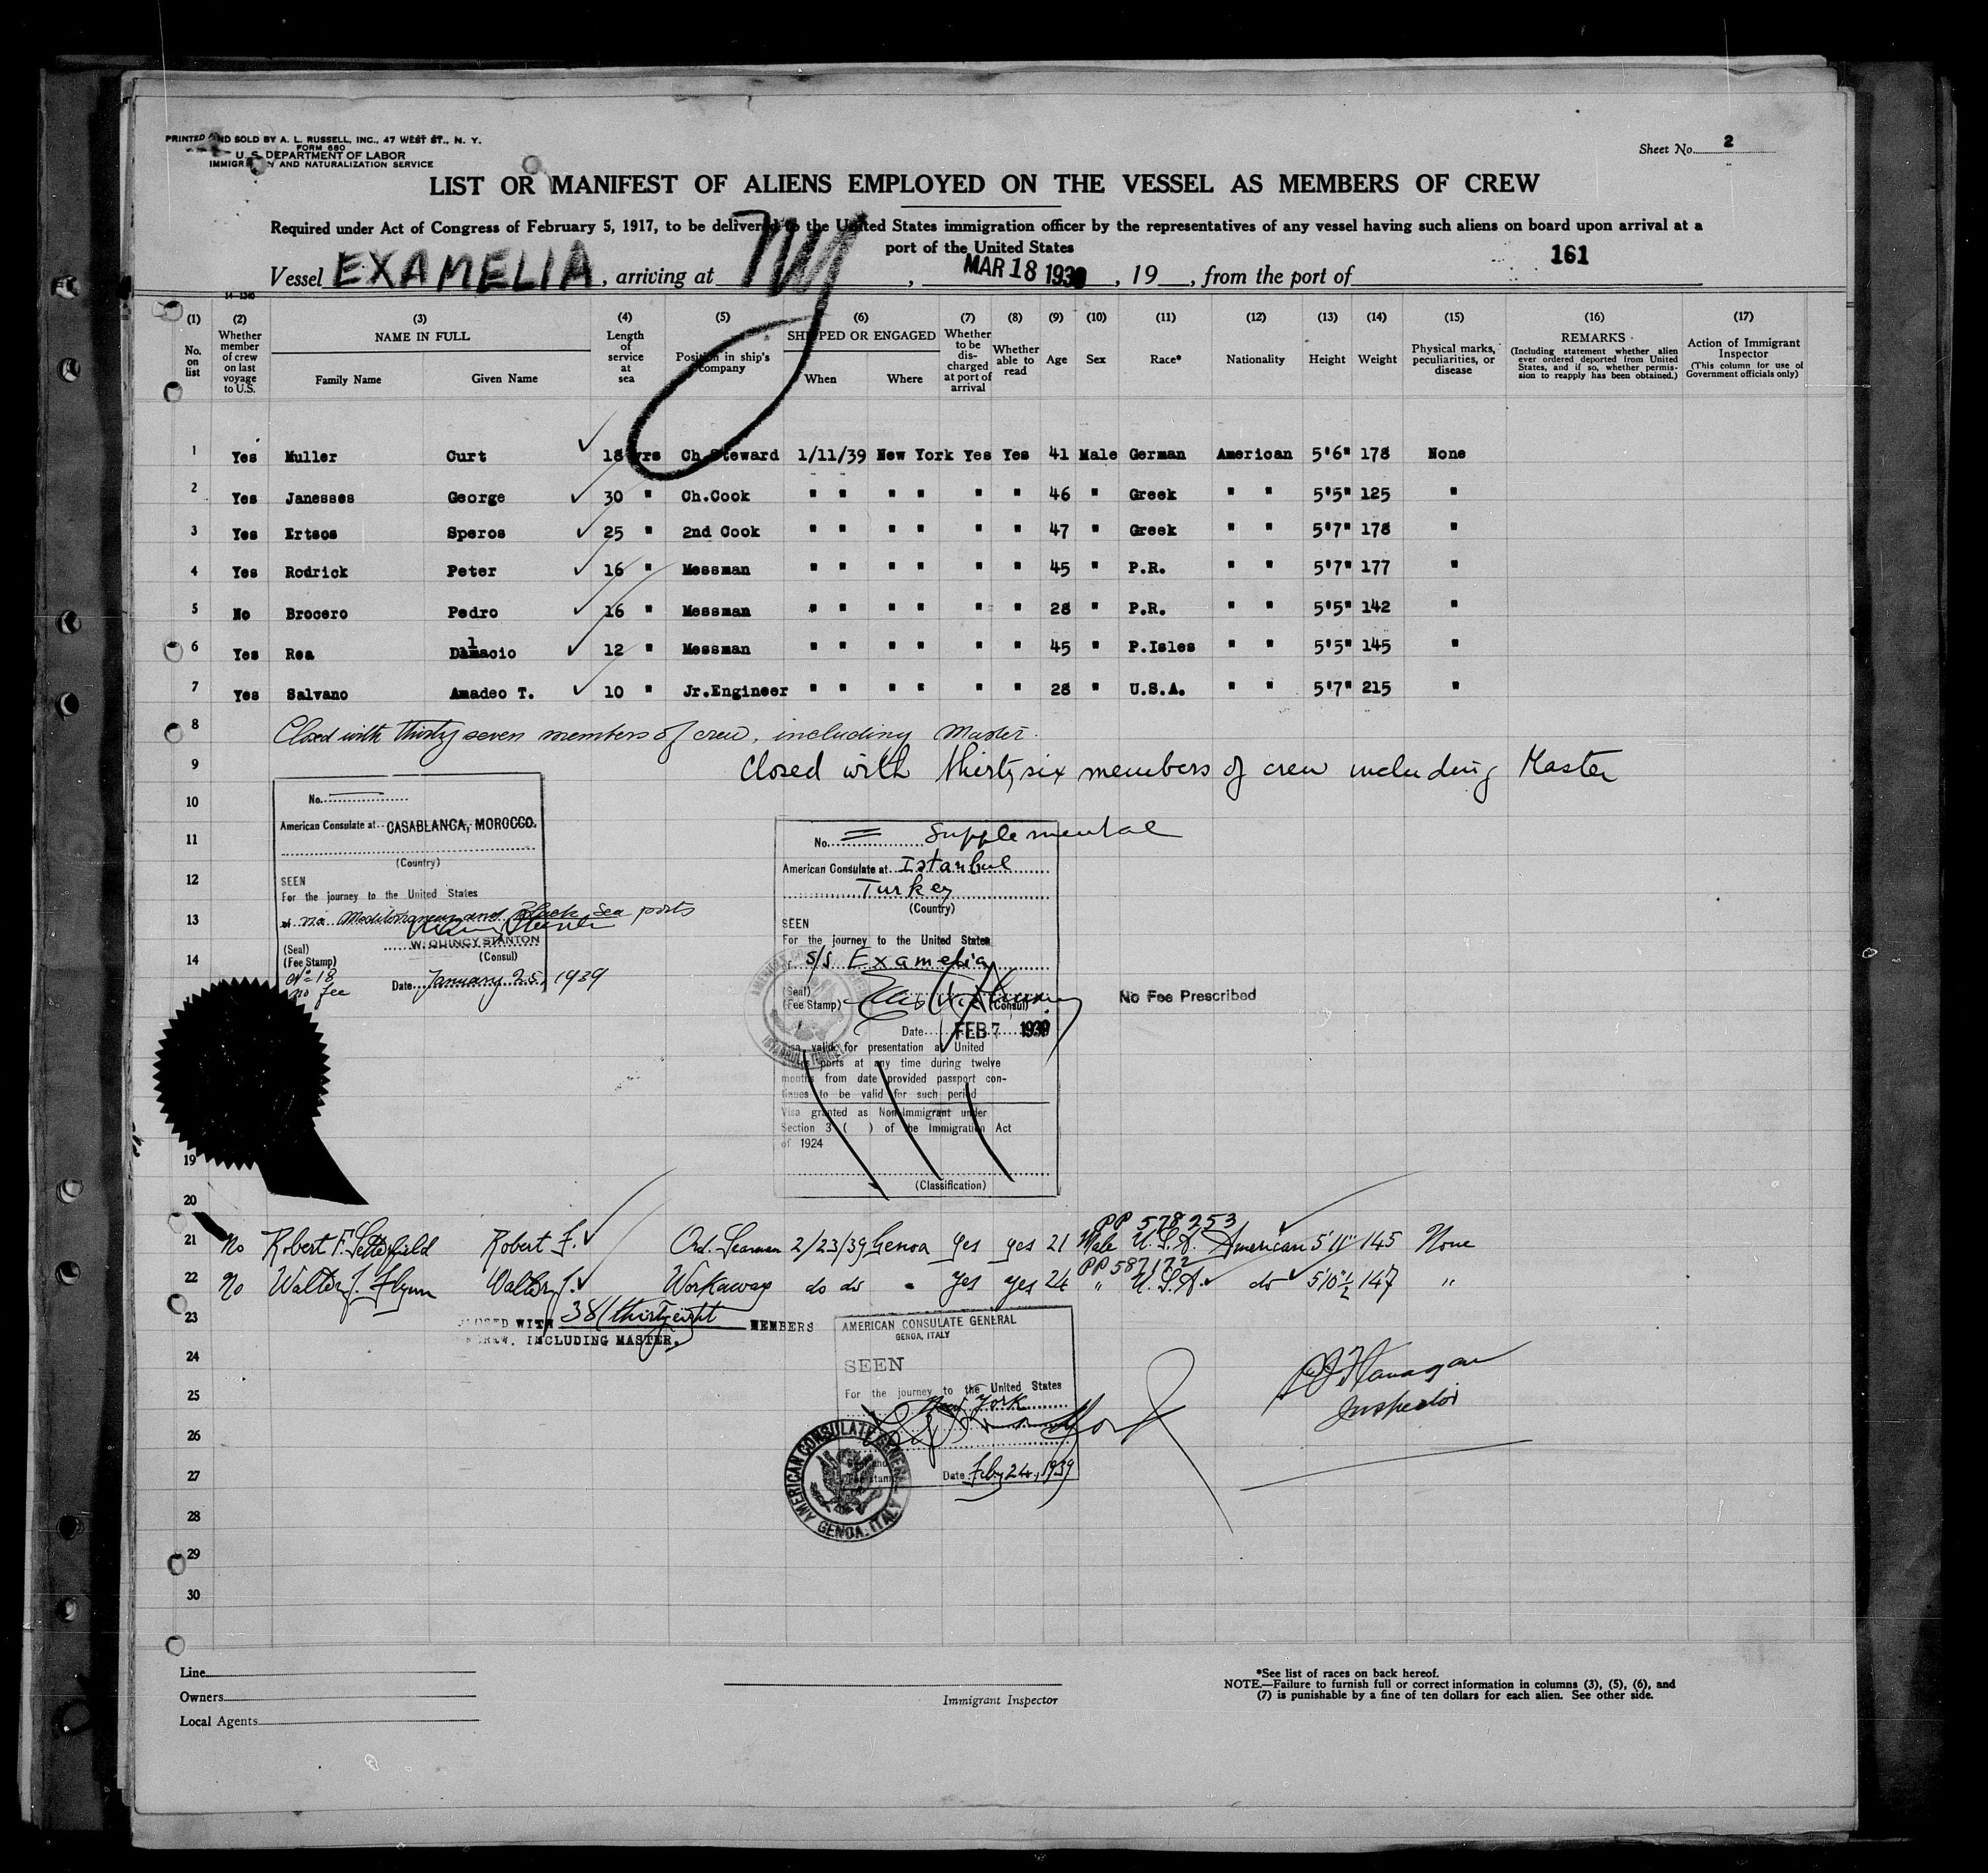 PRINTED AND SOLD BY A. L. RUSSELL, INC., 47 WEST ST., N. Y.
FORM 680
U. S. DEPARTMENT OF LABOR
IMMIGRATION AND NATURALIZATION SERVICE
Sheet No. 2
LIST OR MANIFEST OF ALIENS EMPLOYED ON THE VESSEL AS MEMBERS OF CREW
Required under Act of Congress of February 5, 1917, to be delivered to the United States immigration officer by the representatives of any vessel having such aliens on board upon arrival at a
port of the United States
161
Vessel EXAMELIA, arriving at NY, MAR 18 1939, 19 , from the port of
14-1240
(1) (2) (3) (4) (5) (6) (7) (8) (9) (10) (11) (12) (13) (14) (15) (16) (17)
No. on list
Whether member of crew on last voyage to U.S.
NAME IN FULL
Family Name Given Name
Length of service at sea
Position in ship's company
SHIPPED OR ENGAGED
When Where
Whether to be discharged at port of arrival
Whether able to read
Age
Sex
Race*
Nationality
Height
Weight
Physical marks, peculiarities, or disease
REMARKS
(Including statement whether alien ever ordered deported from United States, and if so, whether permission to reapply has been obtained.)
Action of Immigrant Inspector
(This column for use of Government officials only)
1 Yes Muller Curt 18 yrs Ch.Steward 1/11/39 New York Yes Yes 41 Male German American 5'6" 178 None
2 Yes Janesses George 30 " Ch.Cook " " " " " " 46 " Greek " " 5'5" 125 "
3 Yes Ertsos Speros 25 " 2nd Cook " " " " " " 47 " Greek " " 5'7" 178 "
4 Yes Rodrick Peter 16 " Messman " " " " " " 45 " P.R. " " 5'7" 177 "
5 No Brocero Pedro 16 " Messman " " " " " " 28 " P.R. " " 5'5" 142 "
6 Yes Rea Dalmacio 12 " Messman " " " " " " 45 " P.Isles " " 5'5" 145 "
7 Yes Salvano Amadeo T. 10 " Jr.Engineer " " " " " " 28 " U.S.A. " " 5'7" 215 "
8 Closed with thirty seven members of crew, including Master.
9 Closed with thirty six members of crew including Master
10
11
12
13
14
19
20
No.
American Consulate at CASABLANCA, MOROCCO.
(Country)
SEEN
For the journey to the United States
via Mediterranean and Black Sea ports
W. QUINCY STANTON
(Seal) (Consul)
(Fee Stamp)
No 18
no fee
Date January 25, 1939
No. Supplemental
American Consulate at Istanbul
Turkey
(Country)
SEEN
For the journey to the United States
S/S Examelia
(Seal)
(Fee Stamp) (Consul)
Date FEB 7 1939
No Fee Prescribed
Visa valid for presentation at United
States ports at any time during twelve
months from date provided passport con-
tinues to be valid for such period
Visa granted as Non-Immigrant under
Section 3 ( ) of the Immigration Act
of 1924
(Classification)
PP 578253
21 No Robert F. Setterfield Robert F. Ord. Seaman 2/23/39 Genoa Yes yes 21 Male U.S.A. American 5'11" 145 None
PP 587172
22 No Walter J. Flynn Walter J. Workaway do do " yes yes 24 " U.S.A. do 5'10"½ 147 "
23 CLOSED WITH 38/thirty eight MEMBERS
CREW, INCLUDING MASTER.
24
25
26
27
28
29
30
AMERICAN CONSULATE GENERAL
GENOA, ITALY
SEEN
For the journey to the United States
New York
Date Feby 24, 1939
AMERICAN CONSULATE GENERAL
GENOA, ITALY
Flanagan
Inspector
Line
Owners
Local Agents
Immigrant Inspector
*See list of races on back hereof.
NOTE.—Failure to furnish full or correct information in columns (3), (5), (6), and
(7) is punishable by a fine of ten dollars for each alien. See other side.